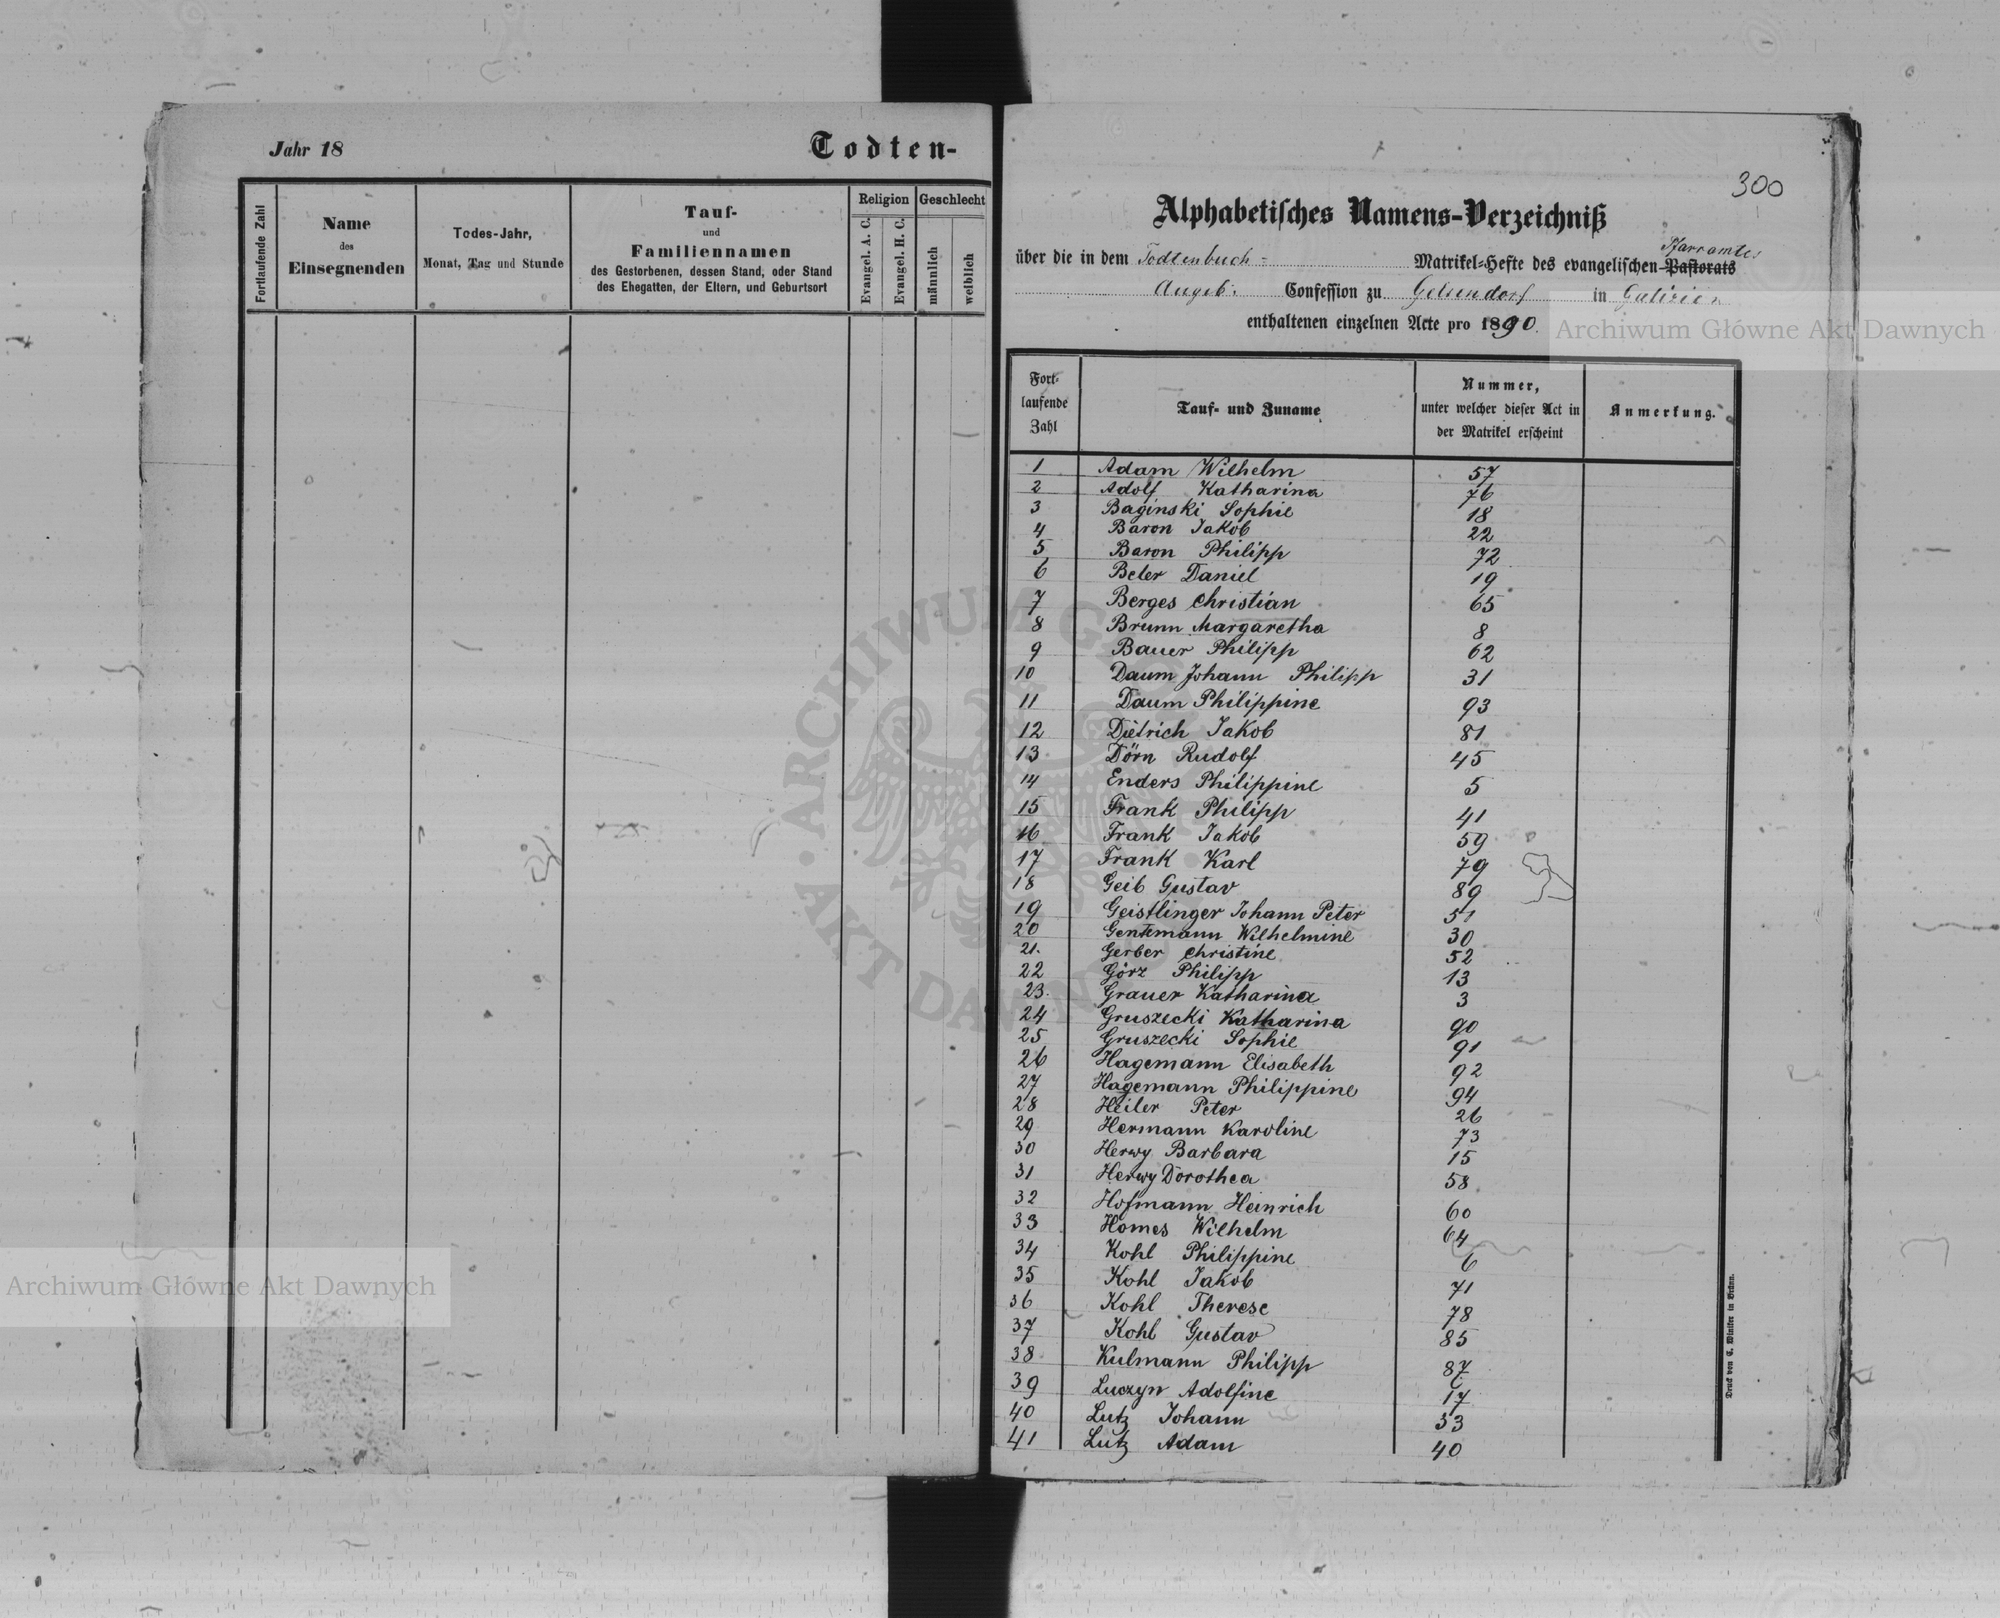 Jahr 18
Todten-
Fortlaufende Zahl
Name
des
Einsegnenden
Todes-Jahr,
Monat, Tag und Stunde
Tauf-
und
Familiennamen
des Gestorbenen, dessen Stand, oder Stand
des Ehegatten, der Eltern, und Geburtsort
Religion
Evangel. A. C.
Evangel. H. C.
Geschlecht
männlich
weiblich
300
Alphabetisches Namens-Verzeichniß
Pfarramtes
über die in dem Todtenbuch- Matrikel-Hefte des evangelischen Pastorats
Augsb. Confession zu Gelsendorf in Galizien
enthaltenen einzelnen Acte pro 1890.
Fort-
laufende
Zahl
Tauf- und Zuname
Nummer,
unter welcher dieser Act in
der Matrikel erscheint
Anmerkung.
1 Adam Wilhelm 57
2 Adolf Katharina 76
3 Baginski Sophie 18
4 Baron Jakob 22
5 Baron Philipp 72
6 Beler Daniel 19
7 Berges Christian 65
8 Brunn Margaretha 8
9 Bauer Philipp 62
10 Daum Johann Philipp 31
11 Daum Philippine 93
12 Dietrich Jakob 81
13 Dörn Rudolf 45
14 Enders Philippine 5
15 Frank Philipp 41
16 Frank Jakob 59
17 Frank Karl 79
18 Geib Gustav 89
19 Geistlinger Johann Peter 51
20 Gentemann Wilhelmine 30
21. Gerber Christine 52
22 Görz Philipp 13
23. Grauer Katharina 3
24 Gruszecki Katharina 90
25 Gruszecki Sophie 91
26 Hagemann Elisabeth 92
27 Hagemann Philippine 94
28 Heiler Peter 26
29 Hermann Karoline 73
30 Herwy Barbara 15
31 Herwy Dorothea 58
32 Hofmann Heinrich 60
33 Homes Wilhelm 64
34 Kohl Philippine 6
35 Kohl Jakob 71
36 Kohl Therese 78
37 Kohl Gustav 85
38 Kulmann Philipp 87
39 Luczyn Adolfine 17
40 Lutz Johann 33
41 Lutz Adam 40
Druck von C. Winiker in Brünn.
Archiwum Główne Akt Dawnych
Archiwum Główne Akt Dawnych